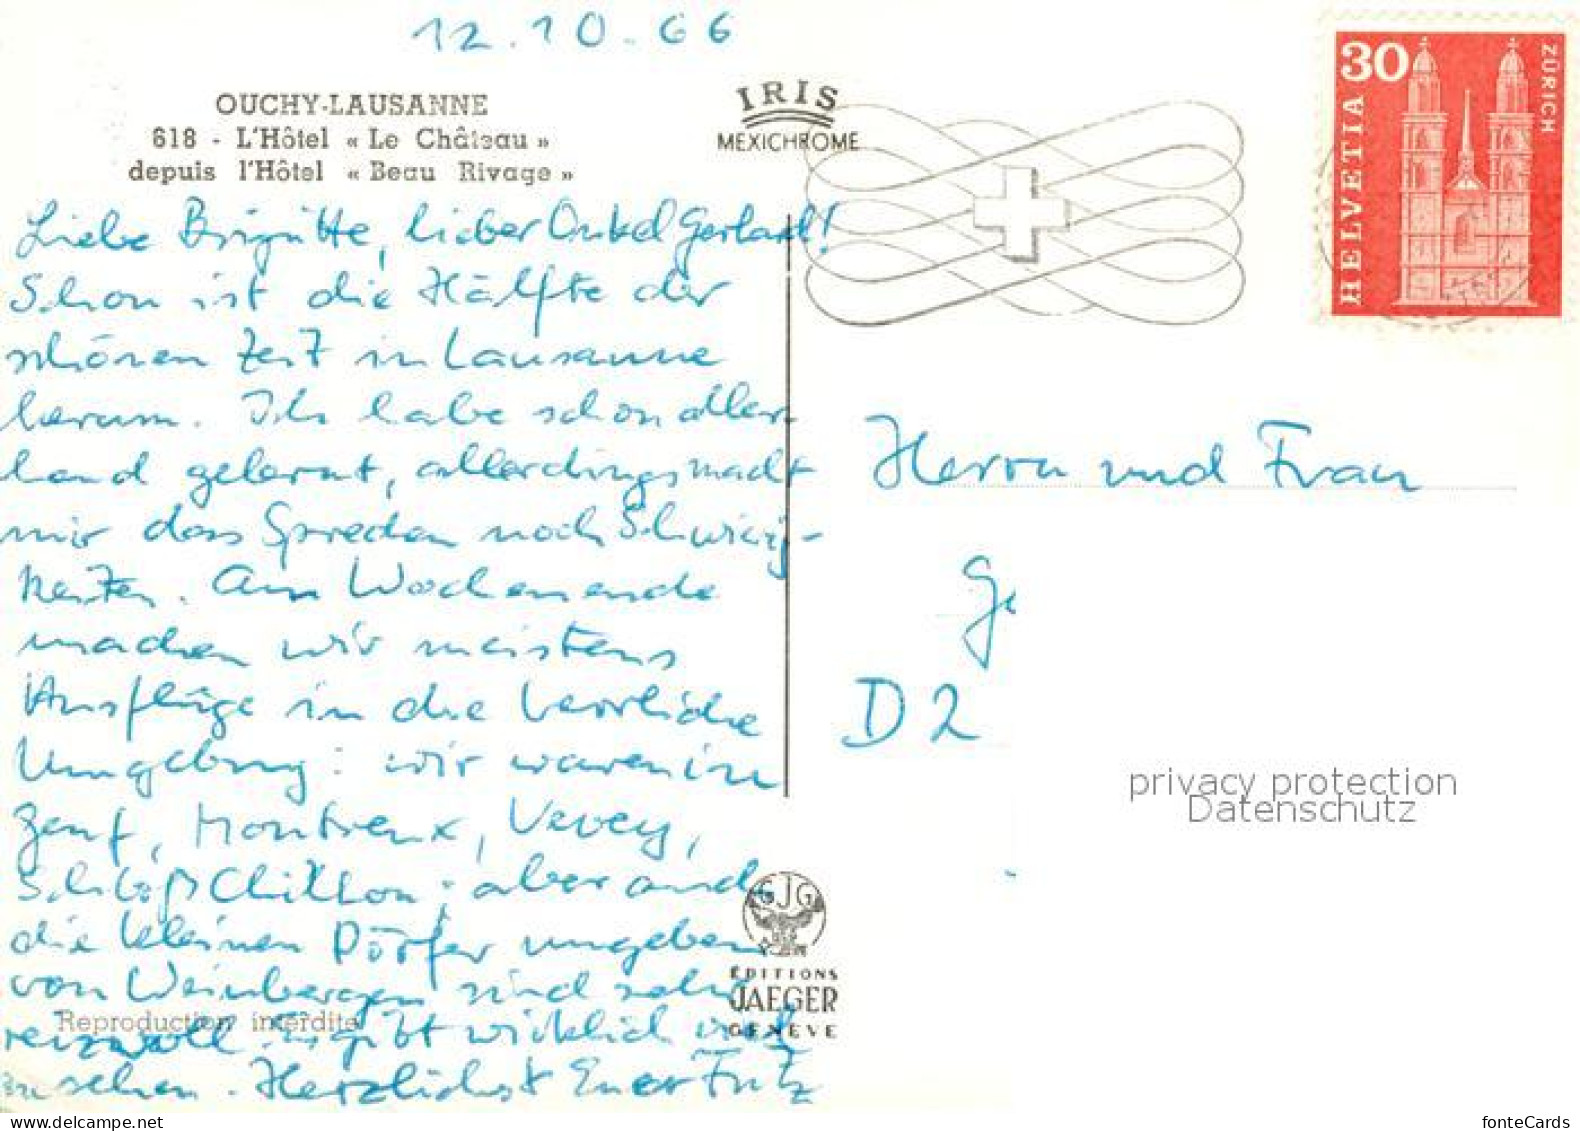 12.10.66
OUCHY-LAUSANNE
618 - L'Hôtel « Le Château »
depuis l'Hôtel « Beau Rivage »
IRIS
MEXICHROME
30
ZÜRICH
HELVETIA
Liebe Brigitte, lieber Onkel Gerhard!
Schon ist die Hälfte der
schönen Zeit in Lausanne
herum. Ich habe schon aller-
hand gelernt, allerdings macht
mir das Sprechen noch Schwierig-
keiten. Am Wochenende
machen wir meistens
Ausflüge in die herrliche
Umgebung: wir waren in
Genf, Montreux, Vevey,
Schloß Chillon; aber auch
die kleinen Dörfer umgeben
von Weinbergen sind sehr
reizvoll. Es gibt wirklich viel
zu sehen. Herzlichst Euer Fritz
Reproduction interdite
GJG
ÉDITIONS
JAEGER
GENÈVE
Herrn und Frau
D 2
privacy protection
Datenschutz
fonteCards